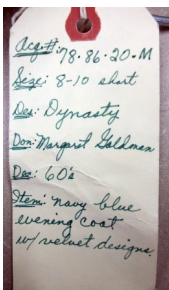 Acq.#: 78.86.20.M
Size: 8-10 short
Des: Dynasty
Don: Margaret Goldman
Dec: 60's
Item: navy blue
evening coat
w/ velvet designs.